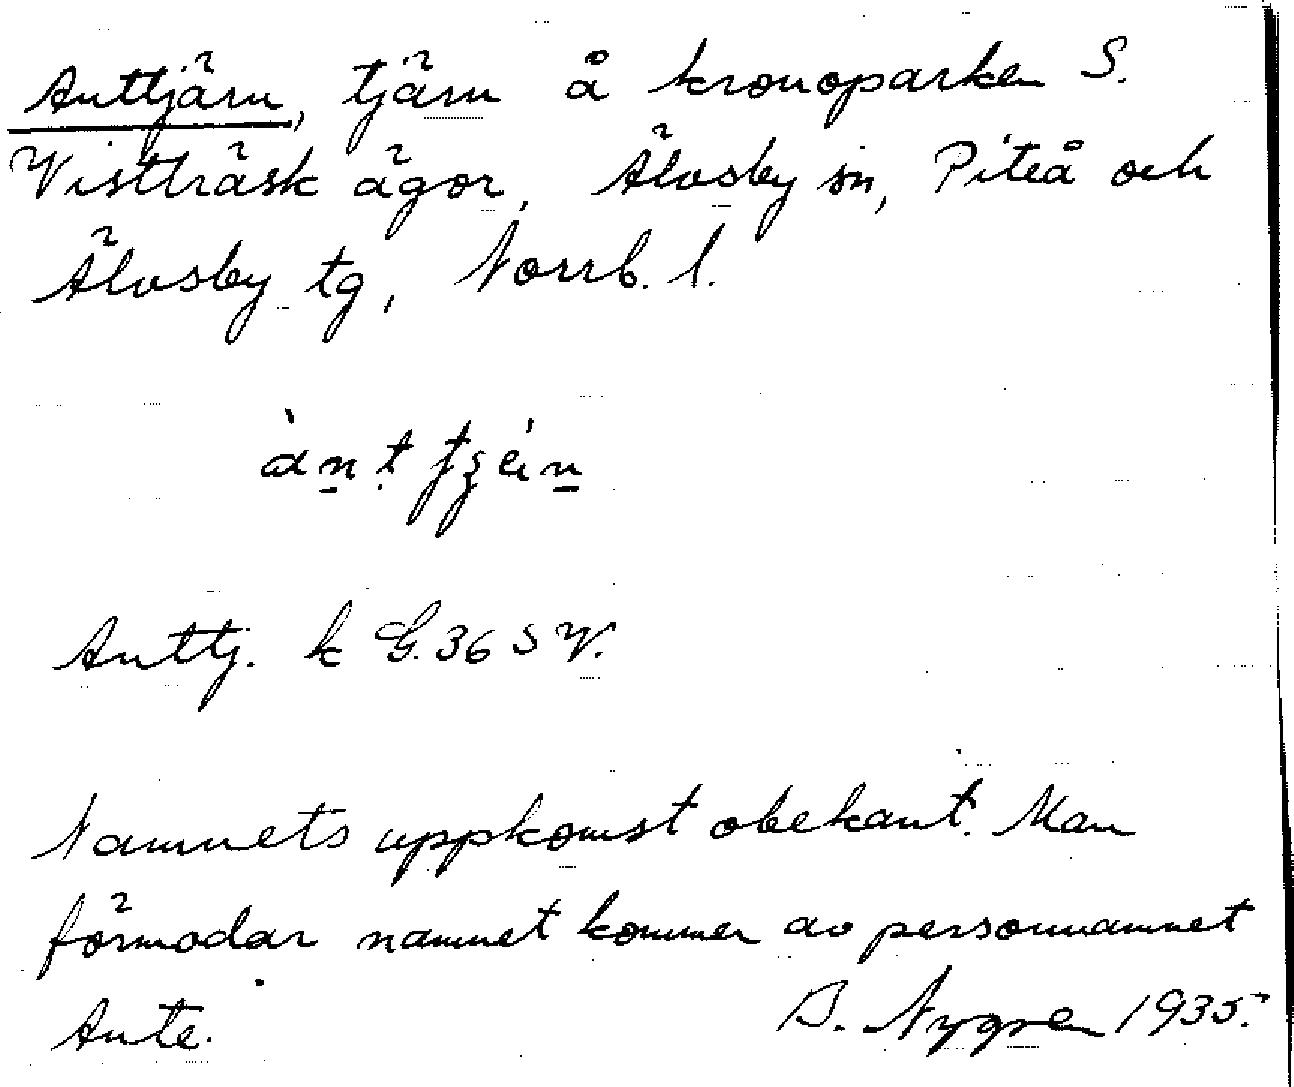 Anttjärn, tjärn å kronoparken S.
Vistträsk ägor, Älvsby sn, Piteå och
Älvsby tg, Norrb. l.
Anttj. k G. 36 S V.
Namnets uppkomst obekant. Man
förmodar namnet kommer av personnamnet
Ante.
B. Nygren 1935.